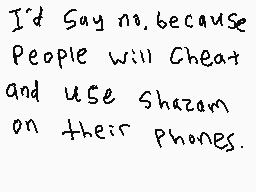 I'd say no, because
People will cheat
and use shazam
on their phones.